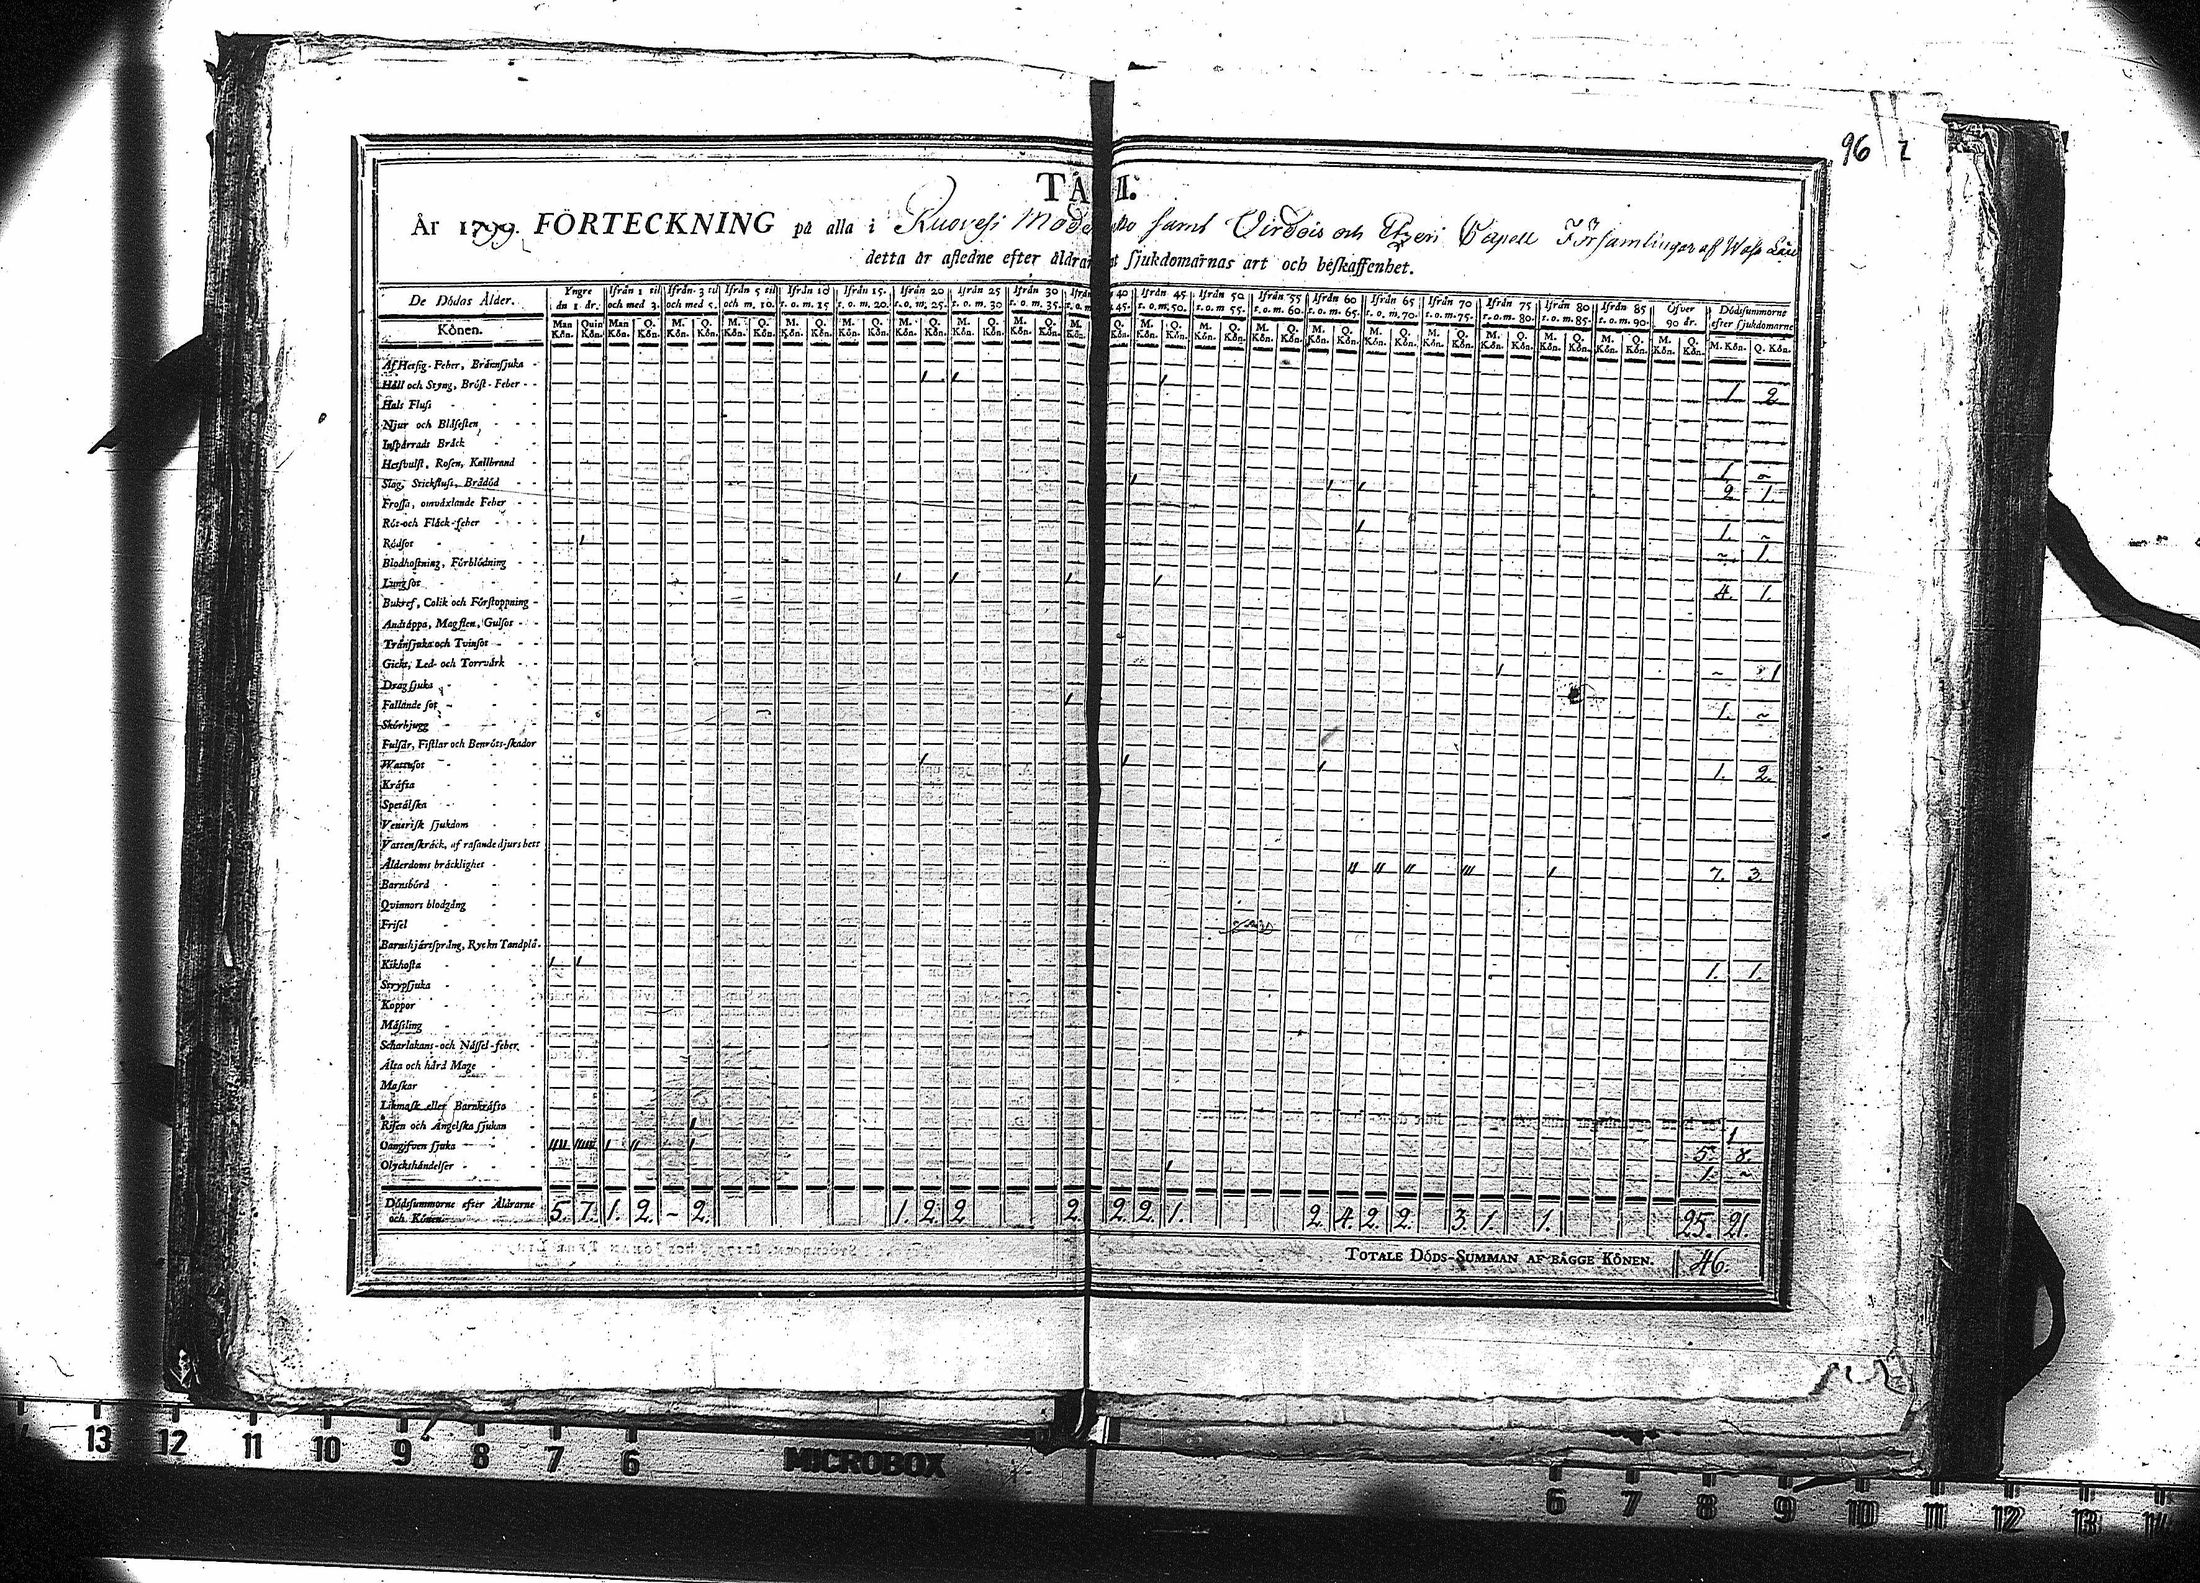 96
TA I.
År 1799. FÖRTECKNING på alla i Ruovesi samt Virdois och Etzeri Capell Församlingar af Wasa Län
detta år afledne efter åldrar ſjukdomarnas art och beſkaffenhet.
De Dödas Ålder. Yngre än 1 år. Ifrån 1 til och med 3. Ifrån 3 til och med 5. Ifrån 5 til och m. 10. Ifrån 10 t. o. m. 15 Ifrån 15. t. o. m. 20. Ifrån 20 t. o. m. 25. Ifrån 25 t. o. m. 30 Ifrån 30 t. o. m. 35. Ifrån 40 t. o. m. 45. Ifrån 45 t. o. m. 50. Ifrån 50 t. o. m. 55. Ifrån 55 t. o. m. 60. Ifrån 60 t. o. m. 65. Ifrån 65 t. o. m. 70. Ifrån 70 t. o. m. 75. Ifrån 75 t. o. m. 80. Ifrån 80 t. o. m. 85. Ifrån 85 t. o. m. 90. Öfver 90 år. Dödsſummorne efter ſjukdomarne
Könen. Man Kön. Quin Kön. Man Kön. Q. Kön. M. Kön. Q. Kön. M. Kön. Q. Kön. M. Kön. Q. Kön. M. Kön. Q. Kön. M. Kön. Q. Kön. M. Kön. Q. Kön. M. Kön. Q. Kön. M. Kön. Q. Kön. M. Kön. Q. Kön. M. Kön. Q. Kön. M. Kön. Q. Kön. M. Kön. Q. Kön. M. Kön. Q. Kön. M. Kön. Q. Kön. M. Kön. Q. Kön. M. Kön. Q. Kön. M. Kön. Q. Kön. M. Kön. Q. Kön. M. Kön. Q. Kön.
Af Hetſig-Feber, Brännſjuka
Håll och Styng, Bröſt-Feber 1 1 1 1 2
Hals Fluſs
Njur och Blåſeſten
Inſpärrads Bräck
Hetſvulſt, Roſen, Kallbrand 1 ~
Slag, Stickfluſs, Brådöd 1 1 1 2 1
Froſſa, omväxlande Feber
Röt-och Fläck-feber 1 1. ~
Rödſot 1 ~ 1.
Blodhoſtning, Förblödning
Lungſot 1 1 1 1 4. 1.
Bukref, Colik och Förſtoppning
Andtäppa, Magſten, Gulſot
Trånſjuka och Tvinſot
Gickt, Led- och Torrvärk 1 ~ 1
Dragſjuka
Fallande ſot 1 1. ~
Skörbjugg
Fulſår, Fiſtlar och Benröts-ſkador
Wattuſot 1 1 1 1. 2.
Kräfta
Spetälſka
Veneriſk ſjukdom
Vattenſkräck, af raſande djurs bett
Ålderdoms bräcklighet 11 11 11 111 1 7. 3.
Barnsbörd
Qvinnors blodgång
Friſel
Barnshjärtſprång, Ryck n Tandplå.
Kikhoſta 1 1 1. 1.
Strypſjuka
Koppor
Mäſsling
Scharlakans-och Näſſel-feber.
Älta och hård Mage
Maſkar
Likmaſk eller Barnkräfta
Riſen och Ängelſka ſjukan 1 1
Oangifven ſjuka 1 11 1 5. 8.
Olyckshändelſer 1 1. ~
Dödsſummorne efter Åldrarne och Könen 5. 7. 1. 2. ~ 2. 1. 2. 2 2. 2. 2. 1. 2. 4. 2. 2. 3. 1. 1. 25. 21.
TOTALE DÖDS-SUMMAN AF BÄGGE KÖNEN. 46.
13 12 11 10 9 8 7 6 MICROBOX 6 7 8 9 10 11 12 13 14